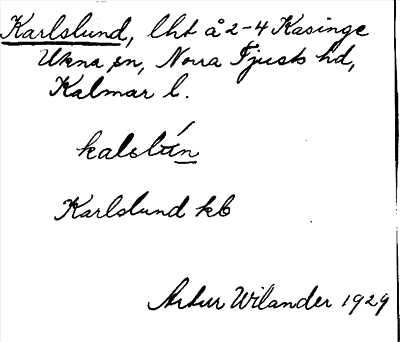 Karlslund, lht å 2-4 Kasinge
Ukna sn, Norra Tjusts hd,
Kalmar l.
kalslún
Karlslund kb
Artur Wilander 1929